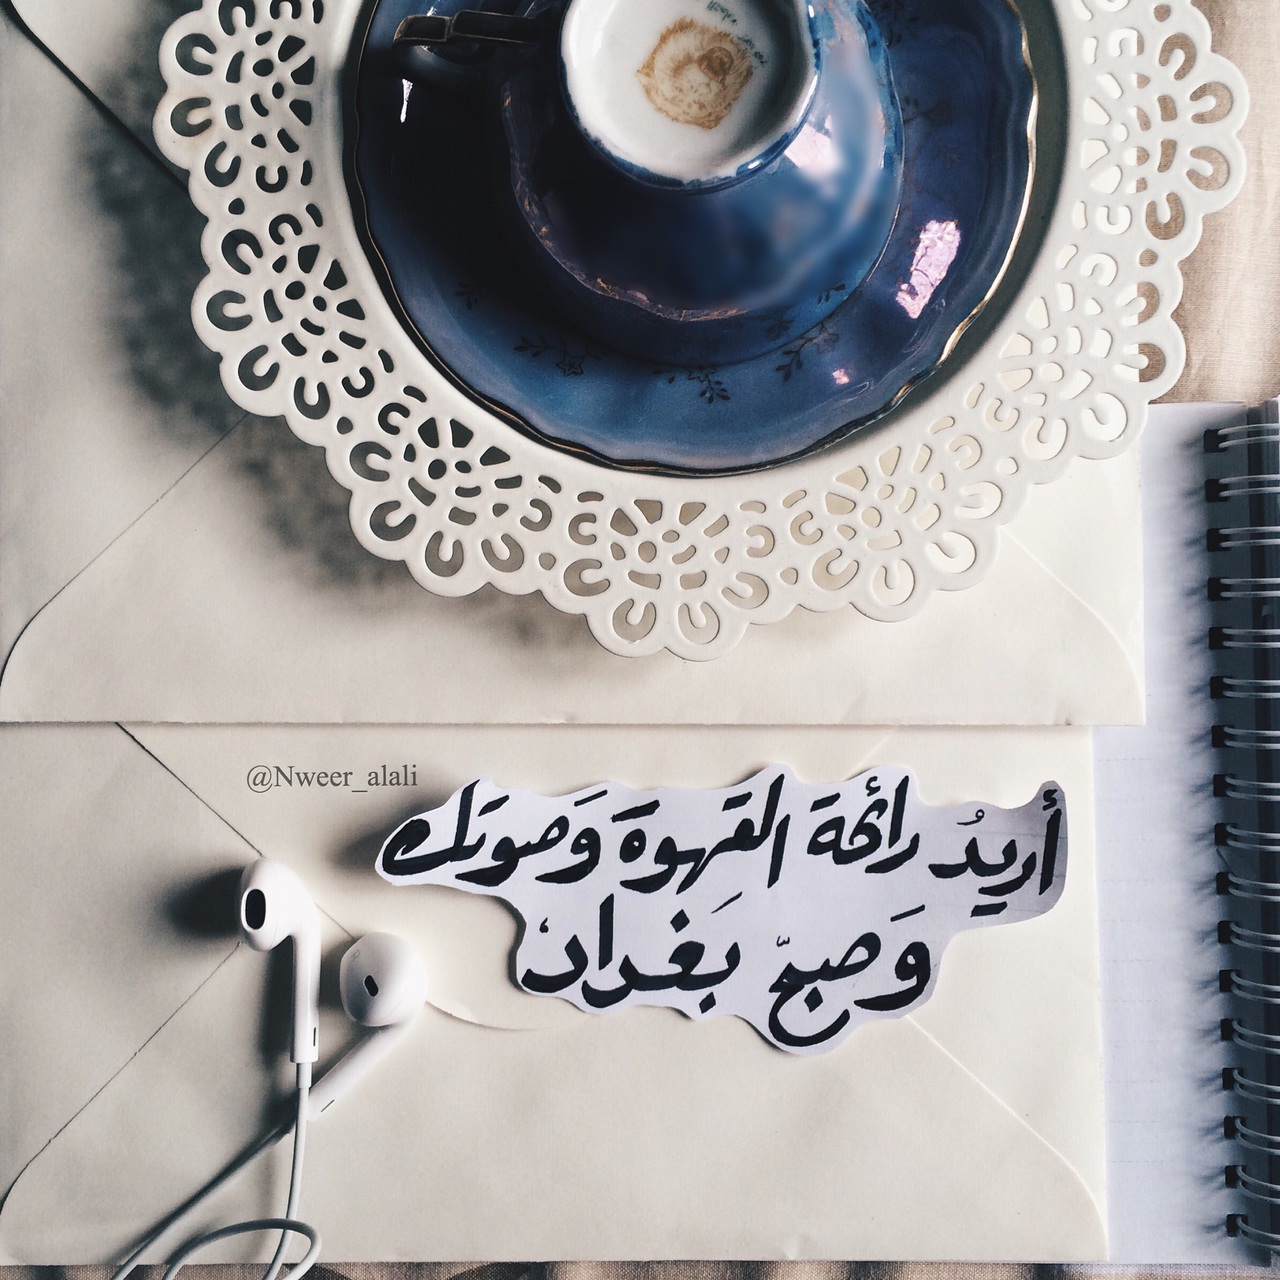 @Nweer_alali
أريدُ رائحة القهوة وَصوتك
وَصبحّ بَغداد